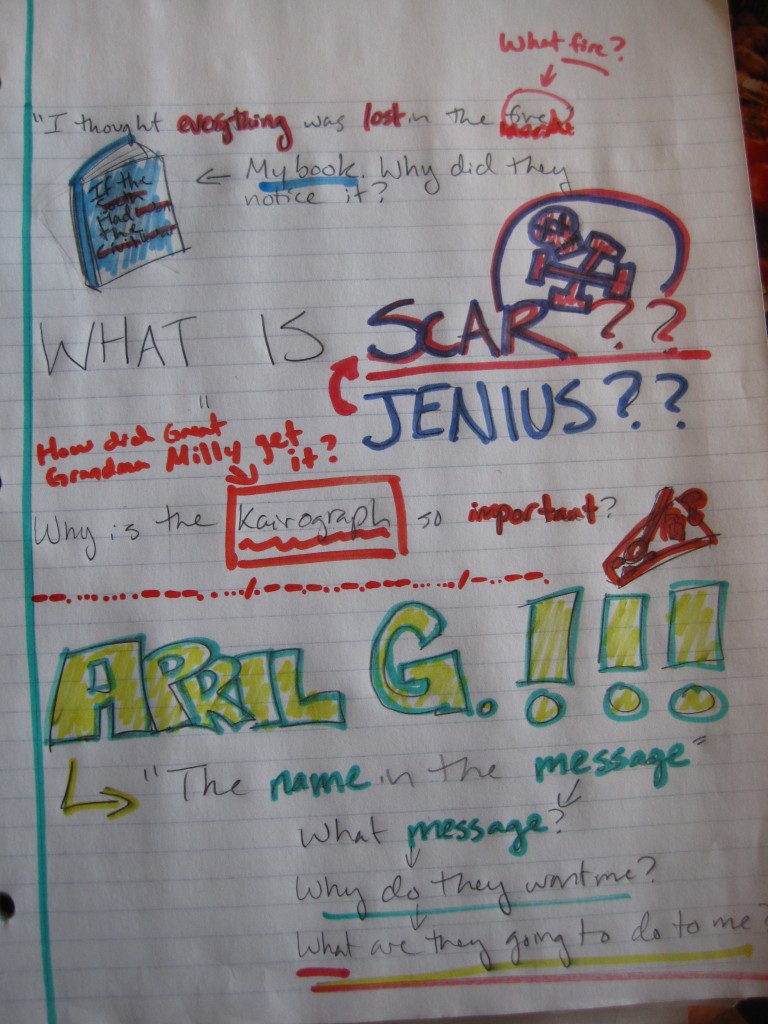 What fire?
"I thought everything was lost in the fire?
← My book. Why did they
notice it?
If the
Had
the
WHAT IS SCAR??
JENIUS??
How did Great
Grandma Milly get
it?
Why is the Kairograph so important?
APRIL G.!!!
"The name in the message"
What message?
Why do they want me?
What are they going to do to me?